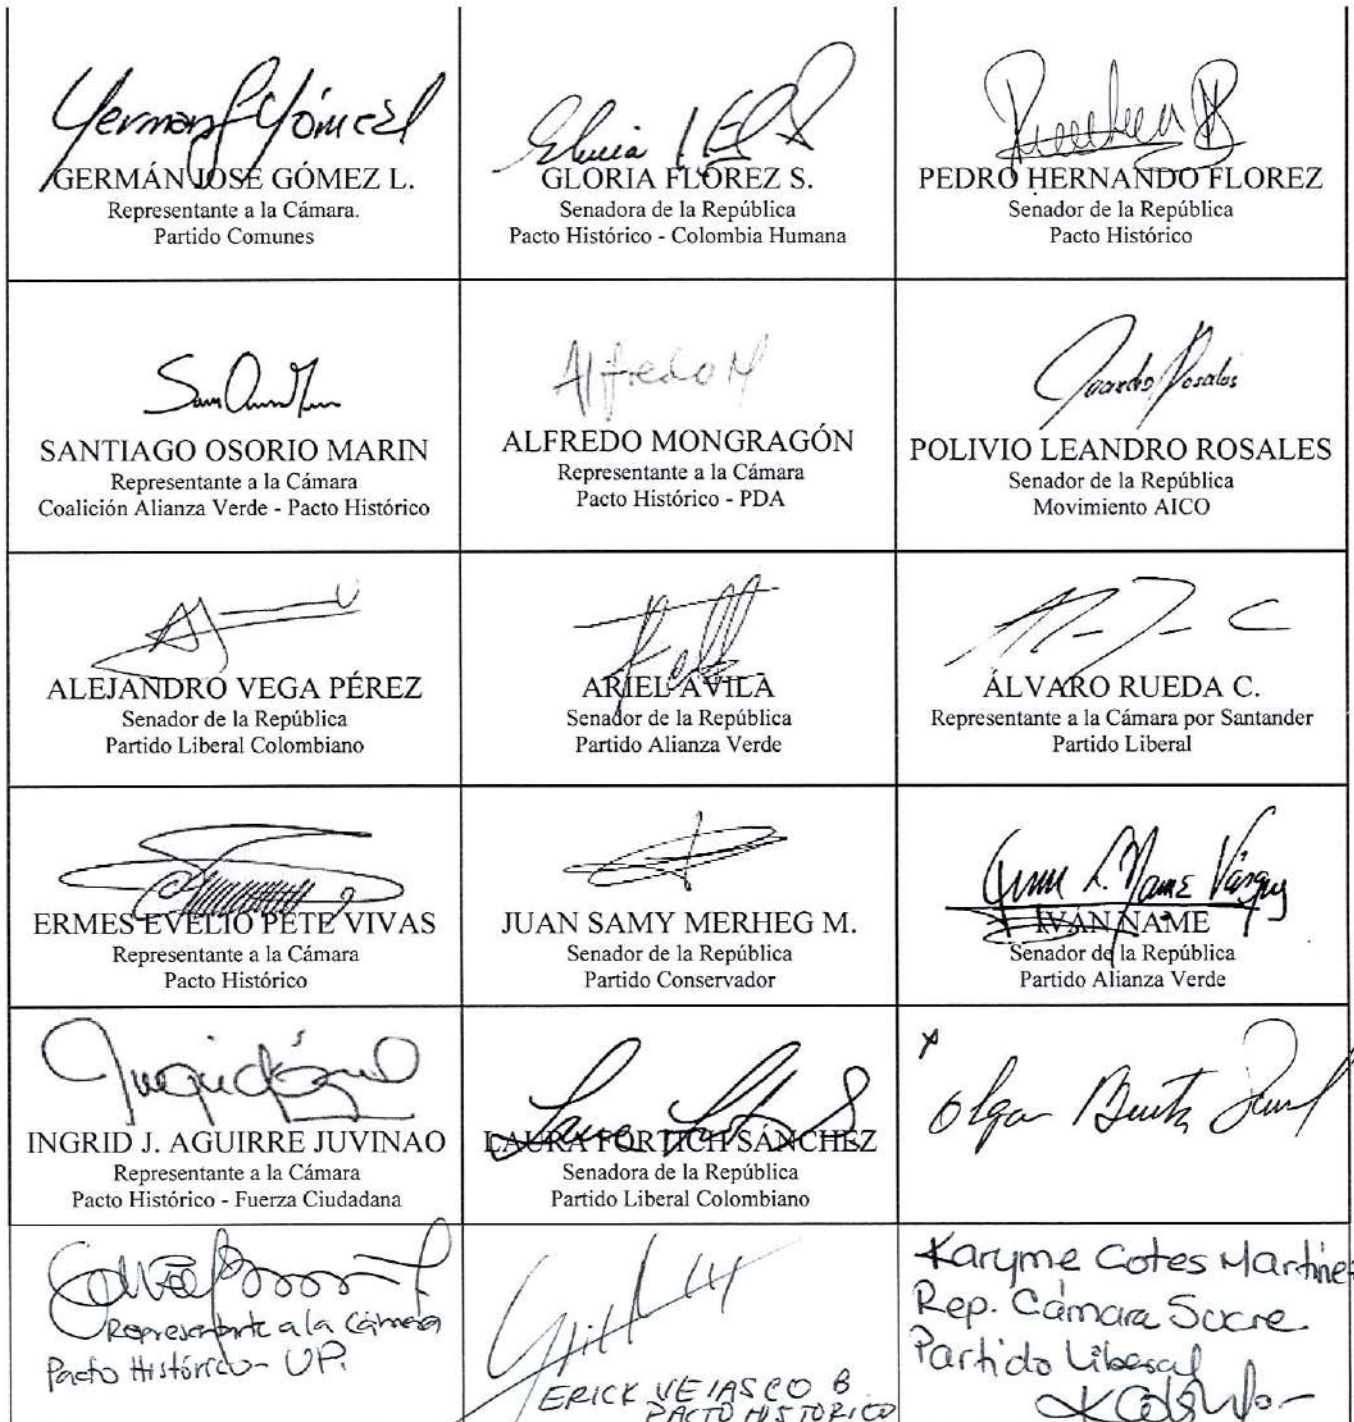 Germán Gómez L
GERMÁN JOSÉ GÓMEZ L.
Representante a la Cámara.
Partido Comunes
GLORIA FLÓREZ S.
Senadora de la República
Pacto Histórico - Colombia Humana
PEDRO HERNANDO FLOREZ
Senador de la República
Pacto Histórico
SANTIAGO OSORIO MARIN
Representante a la Cámara
Coalición Alianza Verde - Pacto Histórico
Alfredo M
ALFREDO MONGRAGÓN
Representante a la Cámara
Pacto Histórico - PDA
Rosales
POLIVIO LEANDRO ROSALES
Senador de la República
Movimiento AICO
ALEJANDRO VEGA PÉREZ
Senador de la República
Partido Liberal Colombiano
ARIEL AVILA
Senador de la República
Partido Alianza Verde
ÁLVARO RUEDA C.
Representante a la Cámara por Santander
Partido Liberal
ERMES EVELIO PETE VIVAS
Representante a la Cámara
Pacto Histórico
JUAN SAMY MERHEG M.
Senador de la República
Partido Conservador
Name Vásquez
IVÁN NAME
Senador de la República
Partido Alianza Verde
INGRID J. AGUIRRE JUVINAO
Representante a la Cámara
Pacto Histórico - Fuerza Ciudadana
LAURA FORTICH SÁNCHEZ
Senadora de la República
Partido Liberal Colombiano
x
Olga
Representante a la Cámara
Pacto Histórico - UP.
ERICK VELASCO B
PACTO HISTORICO
Karyme Cotes Martínez
Rep. Cámara Sucre
Partido Liberal